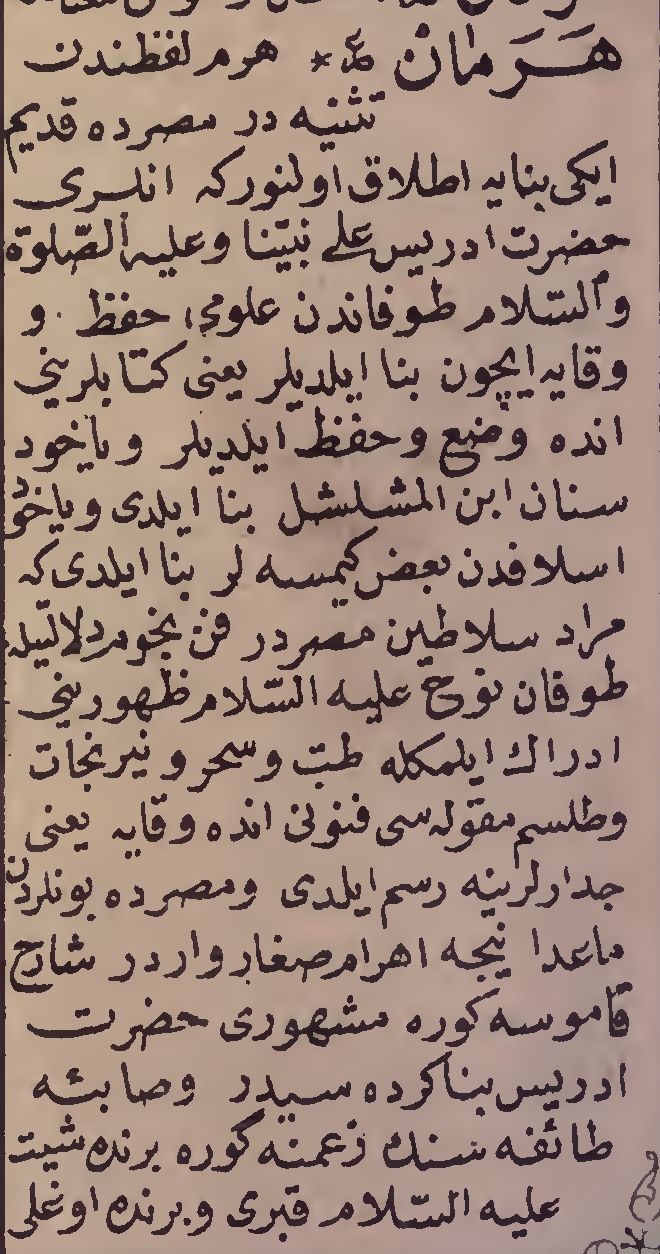 هَرَمَانْ ع * هرم لفظندن
تثنيه در مصرده قديم
ايكى بنايه اطلاق اولنور كه انلرى
حضرت ادريس على نبيّنا وعليه الصّلوة
والسّلام طوفاندن علومى حفظ و
وقايه ايچون بنا ايلديلر يعنى كتابلرينى
انده وضع وحفظ ايلديلر وياخود
سنان ابن المشلشل بنا ايلدى وياخود
اسلافدن بعض كيمسه لر بنا ايلدى كه
مراد سلاطين مصردر فن نجوم دلالتيله
طوفان نوح عليه السّلام ظهورينى
ادراك ايلمكله طبّ وسحر و نيرنجات
وطلسم مقوله سى فنونى انده وقايه يعنى
جدارلرينه رسم ايلدى ومصرده بونلردن
ماعدا نيجه اهرام صغار واردر شارح
قاموسه كوره مشهورى حضرت
ادريس بنا كرده سيدر وصابئه
طائفه سنك زعمنه كوره برنده شيث
عليه السّلام قبرى وبرنده اوغلى